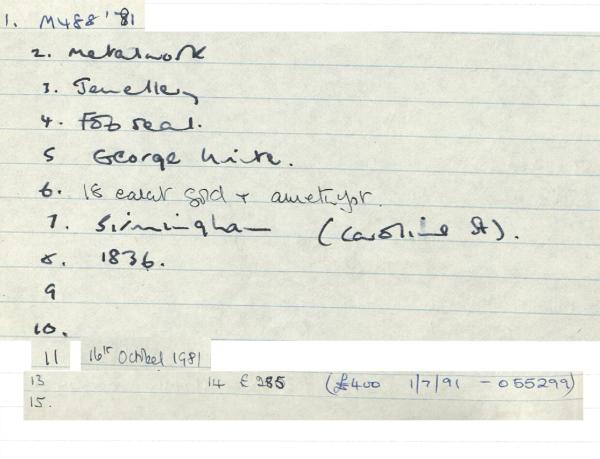 1. M488 '81
2. Metalwork
3. Jewellery
4. Fob seal.
5 George
6. 18 carat gold + amethyst.
7. Birmingham (Caroline St).
8. 1836.
9
10.
11 16th October 1981
13 14 £285 (£400 1/7/91 - 055299)
15.